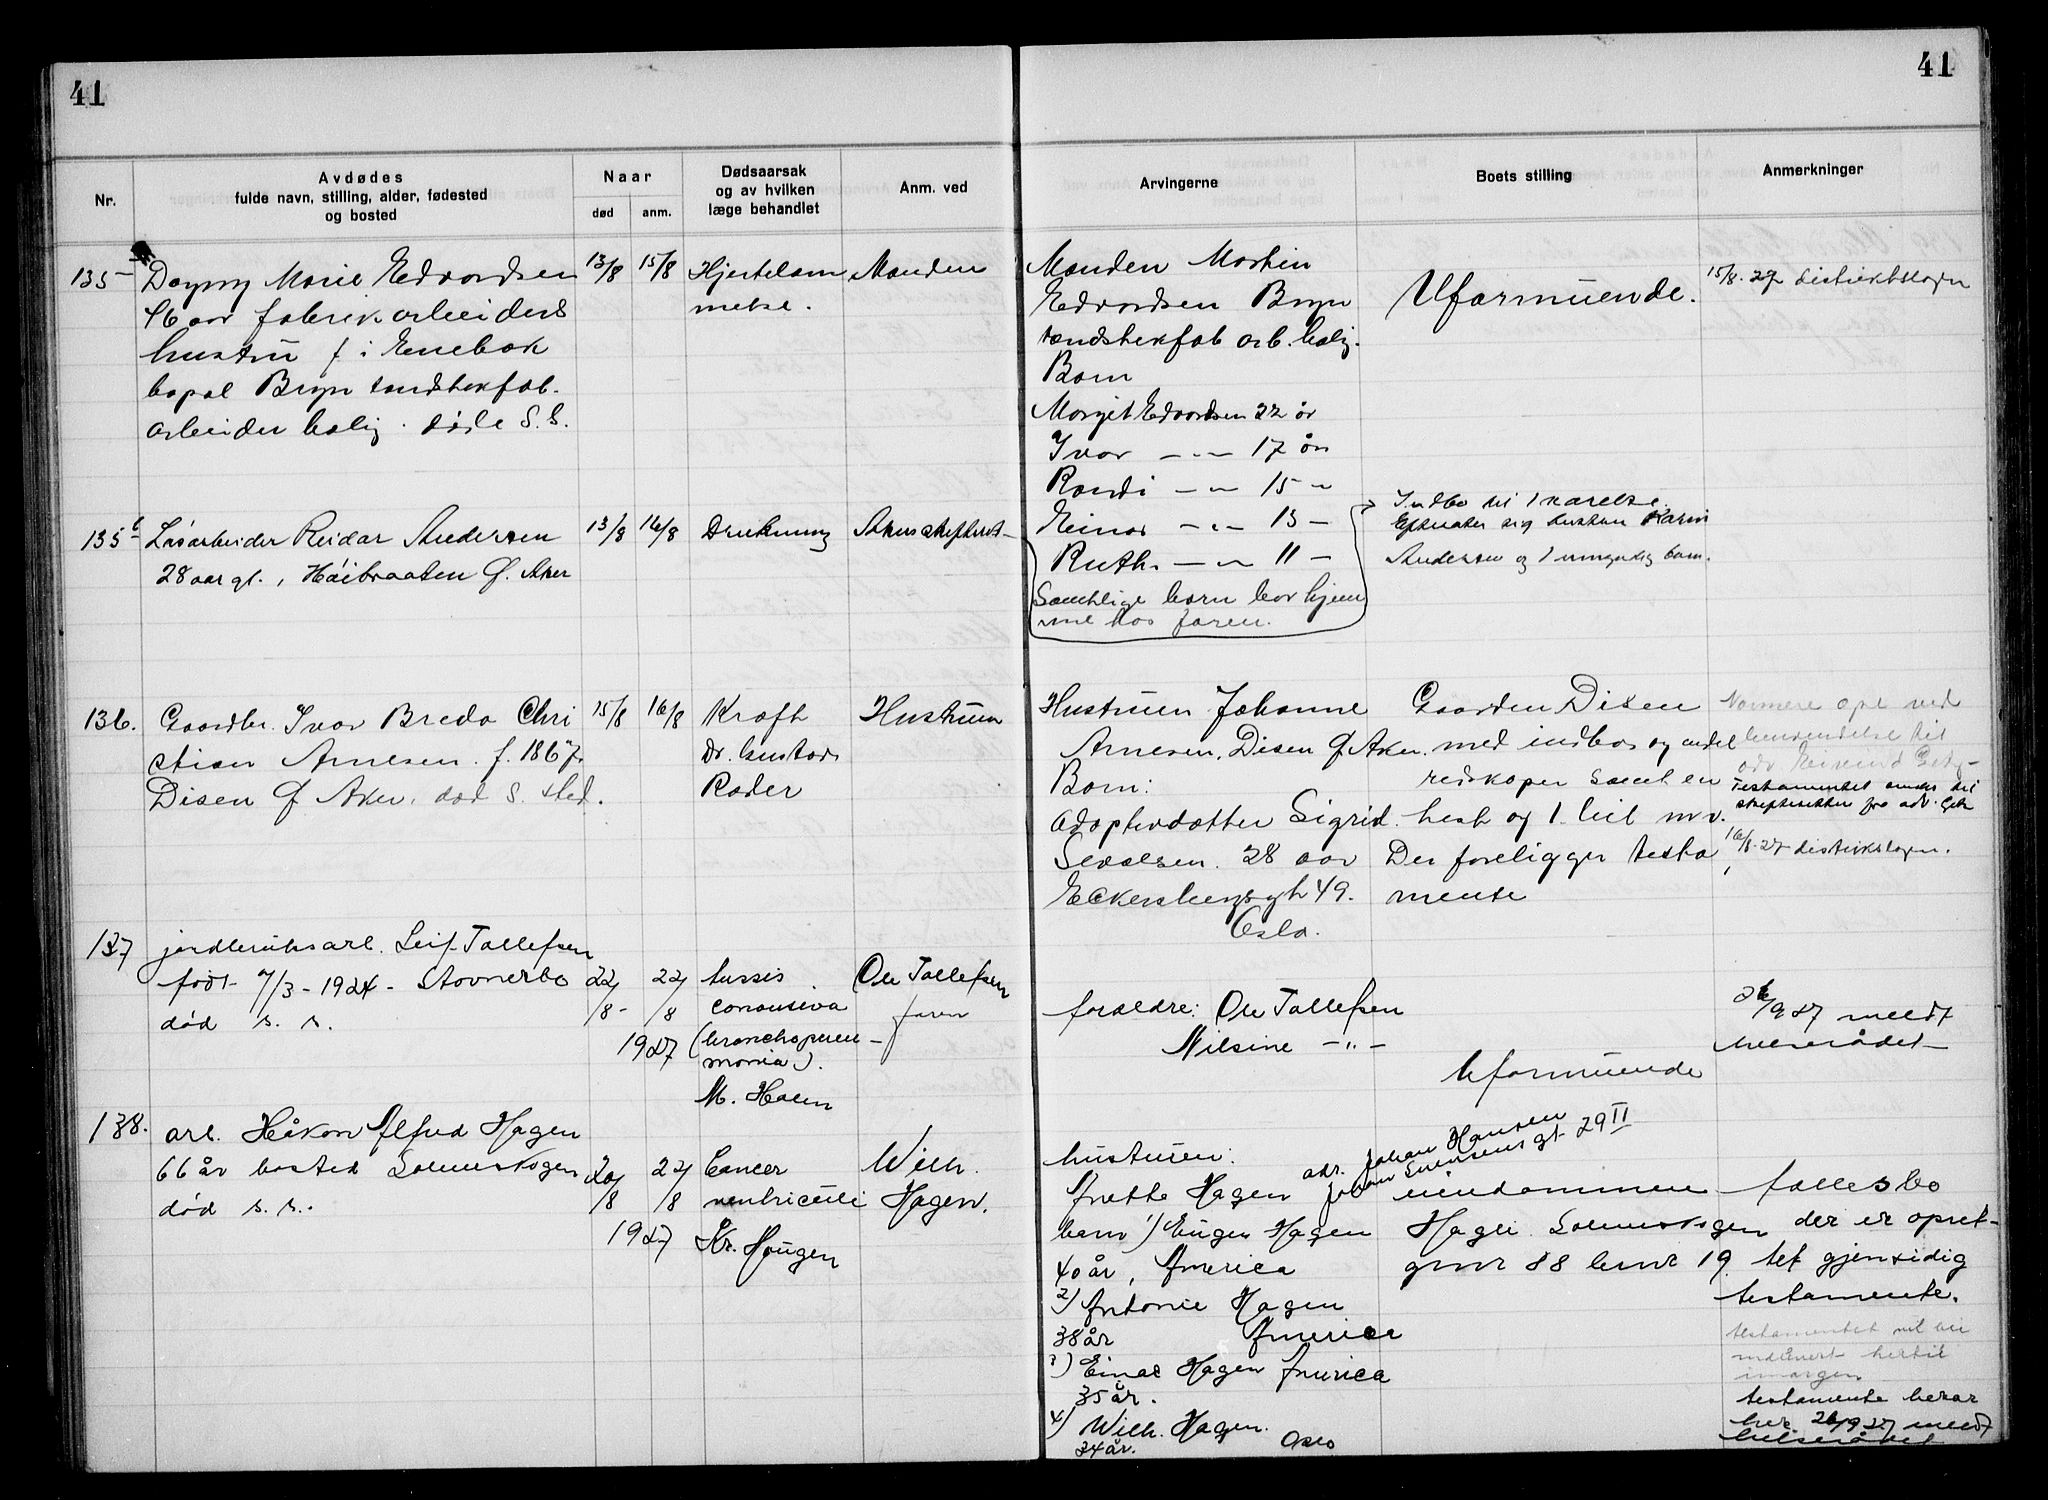 41
41
Nr.
Avdødes
fulde navn, stilling, alder, fødested
og bosted
Naar
død
anm.
Dødsaarsak
og av hvilken
læge behandlet
Anm. ved
Arvingerne
Boets stilling
Anmerkninger
135
Dagny Marie Edvardsen
46 aar fabrikarbeiders
hustru f i Enebak
bopæl Bryn tændstikfab.
arbeider bolig. døde S. S.
13/8
15/8
Hjertelam
melse.
Manden
Manden Martin
Edvardsen Bryn
tændstikfab arb. bolig.
Barn
Margit Edvardsen 22 år
Ivar — " — 17 år
Randi — " — 15 "
Einar — " — 13 —
Ruth. — " — 11 —
Samtlige barn bor hjem
me hos faren.
Uformuende.
15/8. 27 distriktslagen
135 b
Løsarbeider Reidar Andersen
28 aar gl., Høibraaten Ø. Aker
13/8
16/8
Drukning
Aker skifteret
Indbo til
Efterlater sig hustru Karin
Andersen og 1 umyndig barn.
136.
Gaardbr. Ivar Breda Chri
stian Arnesen. f. 1867.
Disen Ø Aker. død S. sted.
15/8
16/8
Kræft
Dr. Gustav
Rader
Hustruen
Hustruen Johanne
Arnesen, Disen Ø Aker.
Barn:
Adoptivdatter Sigrid
28 aar
Eckersbergsgt 49.
Oslo.
Gaarden Disen
med indbo og endel
redskaper samt en
hest og 1. bil m.v.
Der foreligger testa
mente
Nærmere opl ved
henvendelse til
Testamentet sendes til
skifteretten fra adv.
16/8. 27 distriktslagen.
137
jordbruksarb. Leif Tollefsen
født 7/3 - 1924 - Stovnerbo
død s. s.
22/8 -
22/8
1927
tussis
convulsiva
(bronchopneu
monia).
M. Holen
Ole Tollefsen
faren
foreldre: Ole Tollefsen
Nilsine — " —
Uformuende
26/9 27 meldt
helserådet
138.
arb. Håkon Alfred Hagen
66 år bosted Solemskogen
død s. s.
20/8
22/8
1927
Cancer
ventriculi
Kr. Haugen
Wilh.
Hagen.
hustruen:
adr. Johan Hansen
Johan Svensens gt 29 II
Anette Hagen
barn 1) Eugen Hagen
40 år, America
2) Antonie Hagen
38 år America
3) Einar Hagen America
35 år.
4) Wilh. Hagen.
34 år. Oslo
eiendommen
Hagli Solemskogen
gnr 88 bnr 19.
fællesbo
der er opret-
tet gjensidig
testamente.
testamentet vil bli
indlevert hertil
imorgen
testamente beror
her 26/9 27 meldt
helserådet